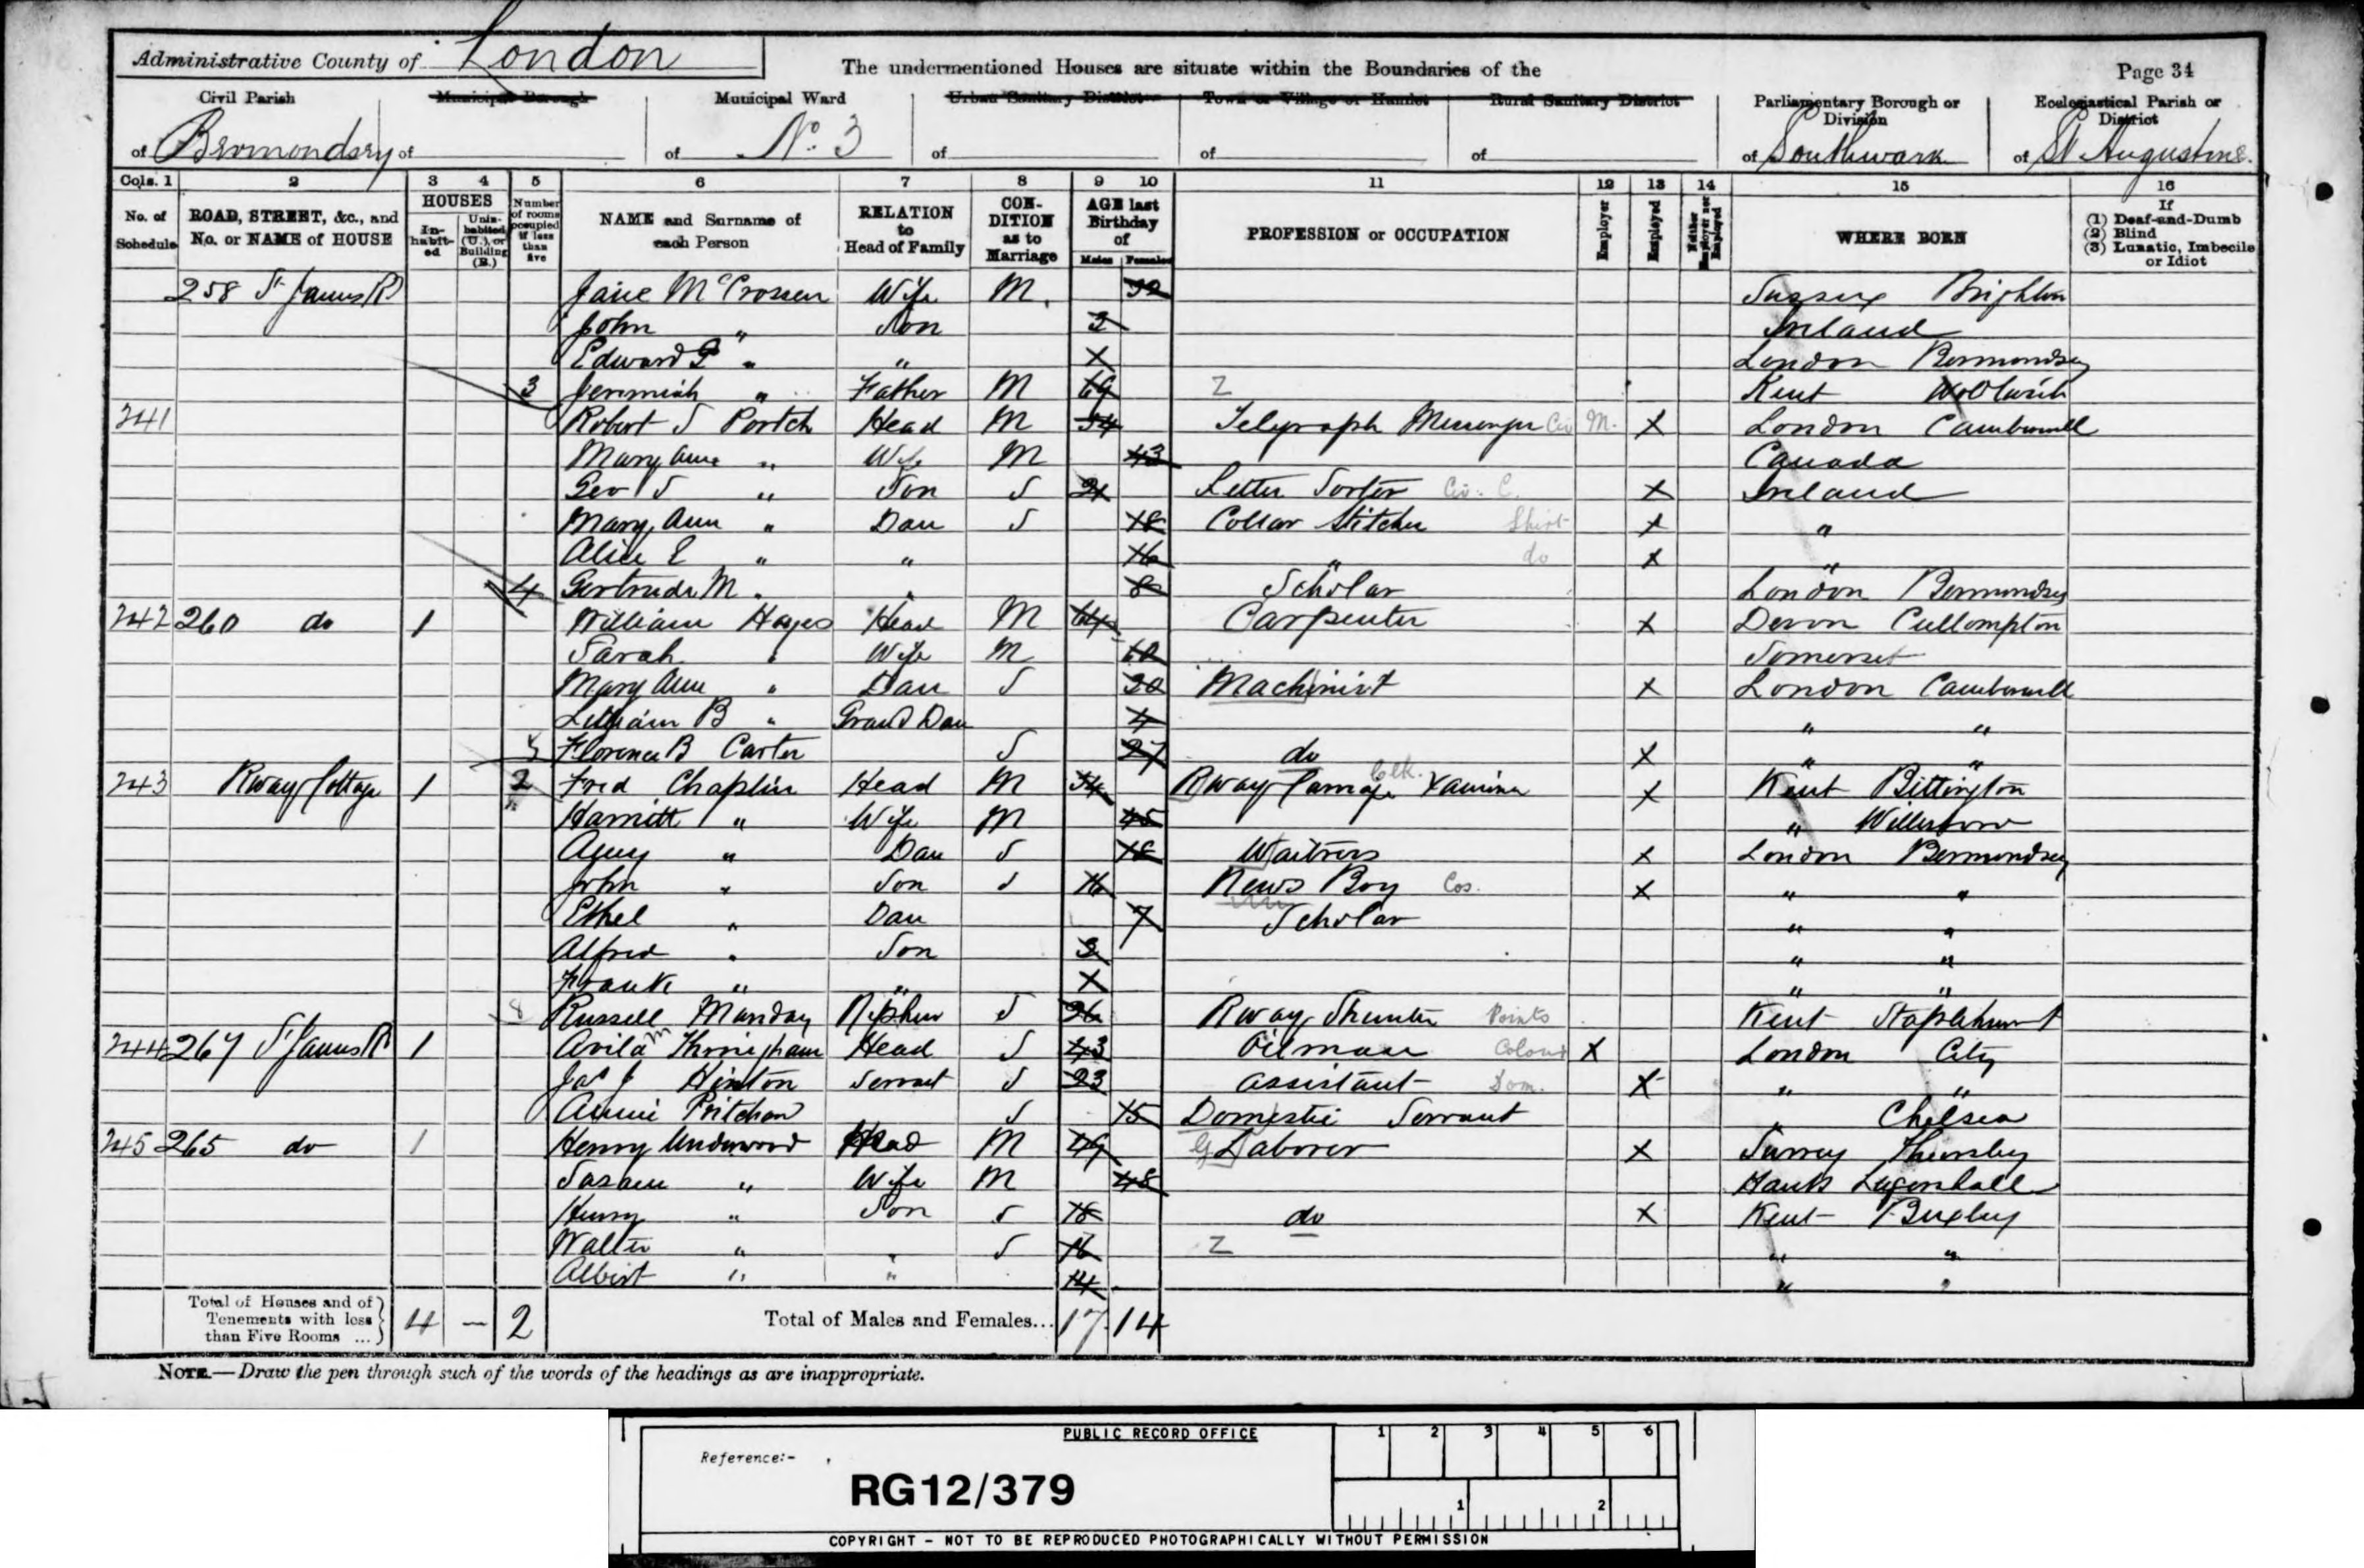 Administrative County of London
The undermentioned Houses are situate within the Boundaries of the
Page 34
Civil Parish of Bermondsey
Municipal Borough of
Municipal Ward of No. 3
Urban Sanitary District of
Town or Village or Hamlet of
Rural Sanitary District of
Parliamentary Borough or Division of Southwark
Ecclesiastical Parish or District of St Augustines
Cols. 1 2 3 4 5 6 7 8 9 10 11 12 13 14 15 16
No. of Schedule
ROAD, STREET, &c., and No. or NAME of HOUSE
HOUSES
In-habit-ed
Unin-habited (U.), or Building (B.)
Number of rooms occupied if less than five
NAME and Surname of each Person
RELATION to Head of Family
CON-DITION as to Marriage
AGE last Birthday of
Males Females
PROFESSION or OCCUPATION
Employer
Employed
Neither Employer nor Employed
WHERE BORN
If (1) Deaf-and-Dumb (2) Blind (3) Lunatic, Imbecile or Idiot
258 St James Rd Jane McCrossen Wife M Sussex Brighton
John " Son 2 Ireland
Edward G " " London Bermondsey
3 Jeremiah " Father M 69 Z Kent Woolwich
241 Robert S Portch Head M 54 Telegraph Messenger Civ M. X London Camberwell
Mary Ann " Wife M 43 Canada
Geo S " Son S 21 Letter Sorter Civ. C. X Ireland
Mary Ann " Dau S 18 Collar Stitcher Shirt X "
Alice E " " 16 " do X "
4 Gertrude M " " 8 Scholar London Bermondsey
242 260 do 1 William Hayes Head M 64 Carpenter X Devon Cullompton
Sarah " Wife M Somerset
Mary Ann " Dau S Machinist X London Camberwell
B " Grand Dau 4 " "
Florence B Carter S 27 do X " "
243 Rway Cottage 1 2 Fred Chaplin Head M 54 Rway Carriage Xaminer X Kent
Harriett " Wife M 45 " Willesboro
Dau S 18 Waitress X London Bermondsey
John " Son S 16 News Boy Cos. X " "
Ethel " Dau 7 Scholar " "
Alfred " Son " "
Frank " " " "
8 Russell Manday Nephew S 26 Rway Shunter Points Kent Staplehurst
244 267 St James Rd 1 Head S 43 Oilman Colour X London City
Jas J Hinton Servant S 23 Assistant Dom. X " "
Annie Pritchard S 15 Domestic Servant " Chelsea
245 265 do 1 Henry Underwood Head M 49 G Laborer X Surrey Thursley
" Wife M 48 Hants
Henry " Son S 18 do X Kent Bexley
Walter " " S 16 Z " "
Albert " " 14 " "
Total of Houses and of Tenements with less than Five Rooms ... 4 — 2
Total of Males and Females... 17 14
NOTE.—Draw the pen through such of the words of the headings as are inappropriate.
PUBLIC RECORD OFFICE
1 2 3 4 5 6
Reference:-
RG12/379
1 2
COPYRIGHT - NOT TO BE REPRODUCED PHOTOGRAPHICALLY WITHOUT PERMISSION